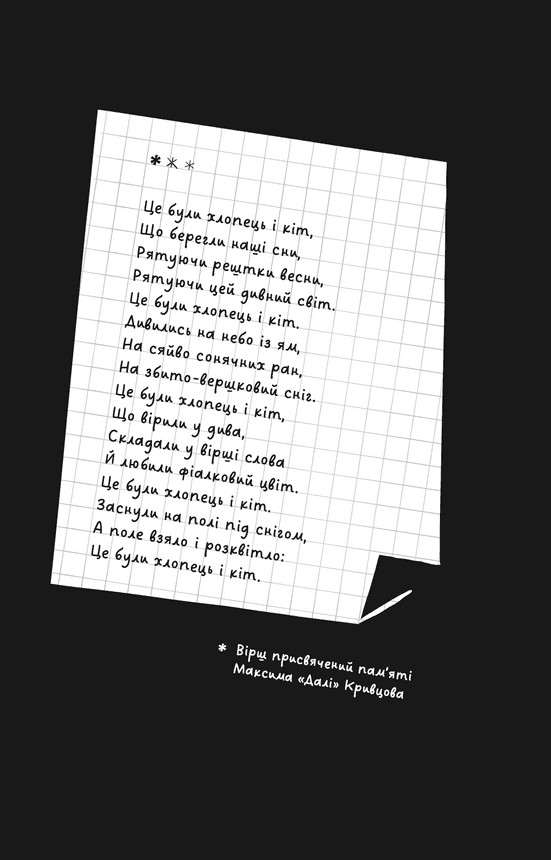 ***
Це були хлопець і кіт,
Що берегли наші сни,
Рятуючи рештки весни,
Рятуючи цей дивний світ.
Це були хлопець і кіт.
Дивились на небо із ям,
На сяйво сонячних ран,
На збито-вершковий сніг.
Це були хлопець і кіт,
Що вірили у дива,
Складали у вірші слова
Й любили фіалковий цвіт.
Це були хлопець і кіт.
Заснули на полі під снігом,
А поле взяло і розквітло:
Це були хлопець і кіт.
* Вірш присвячений пам'яті
Максима «Далі» Кривцова